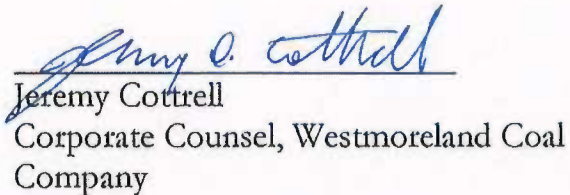 Jeremy D. Cottrell
Jeremy Cottrell
Corporate Counsel, Westmoreland Coal
Company